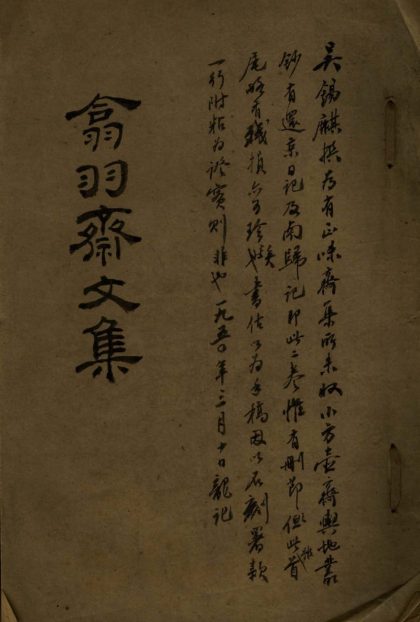 吳錫麒撰為有正味齋集所未收小方壺齋輿地叢
鈔有還京日記及南歸記即此二卷惟有刪節但此首
尾略有殘損亦可珍也書估以為手稿因以石刻署款
一行附粘為證實則非也一九五〇年三月十日龍記
翕羽齋文集